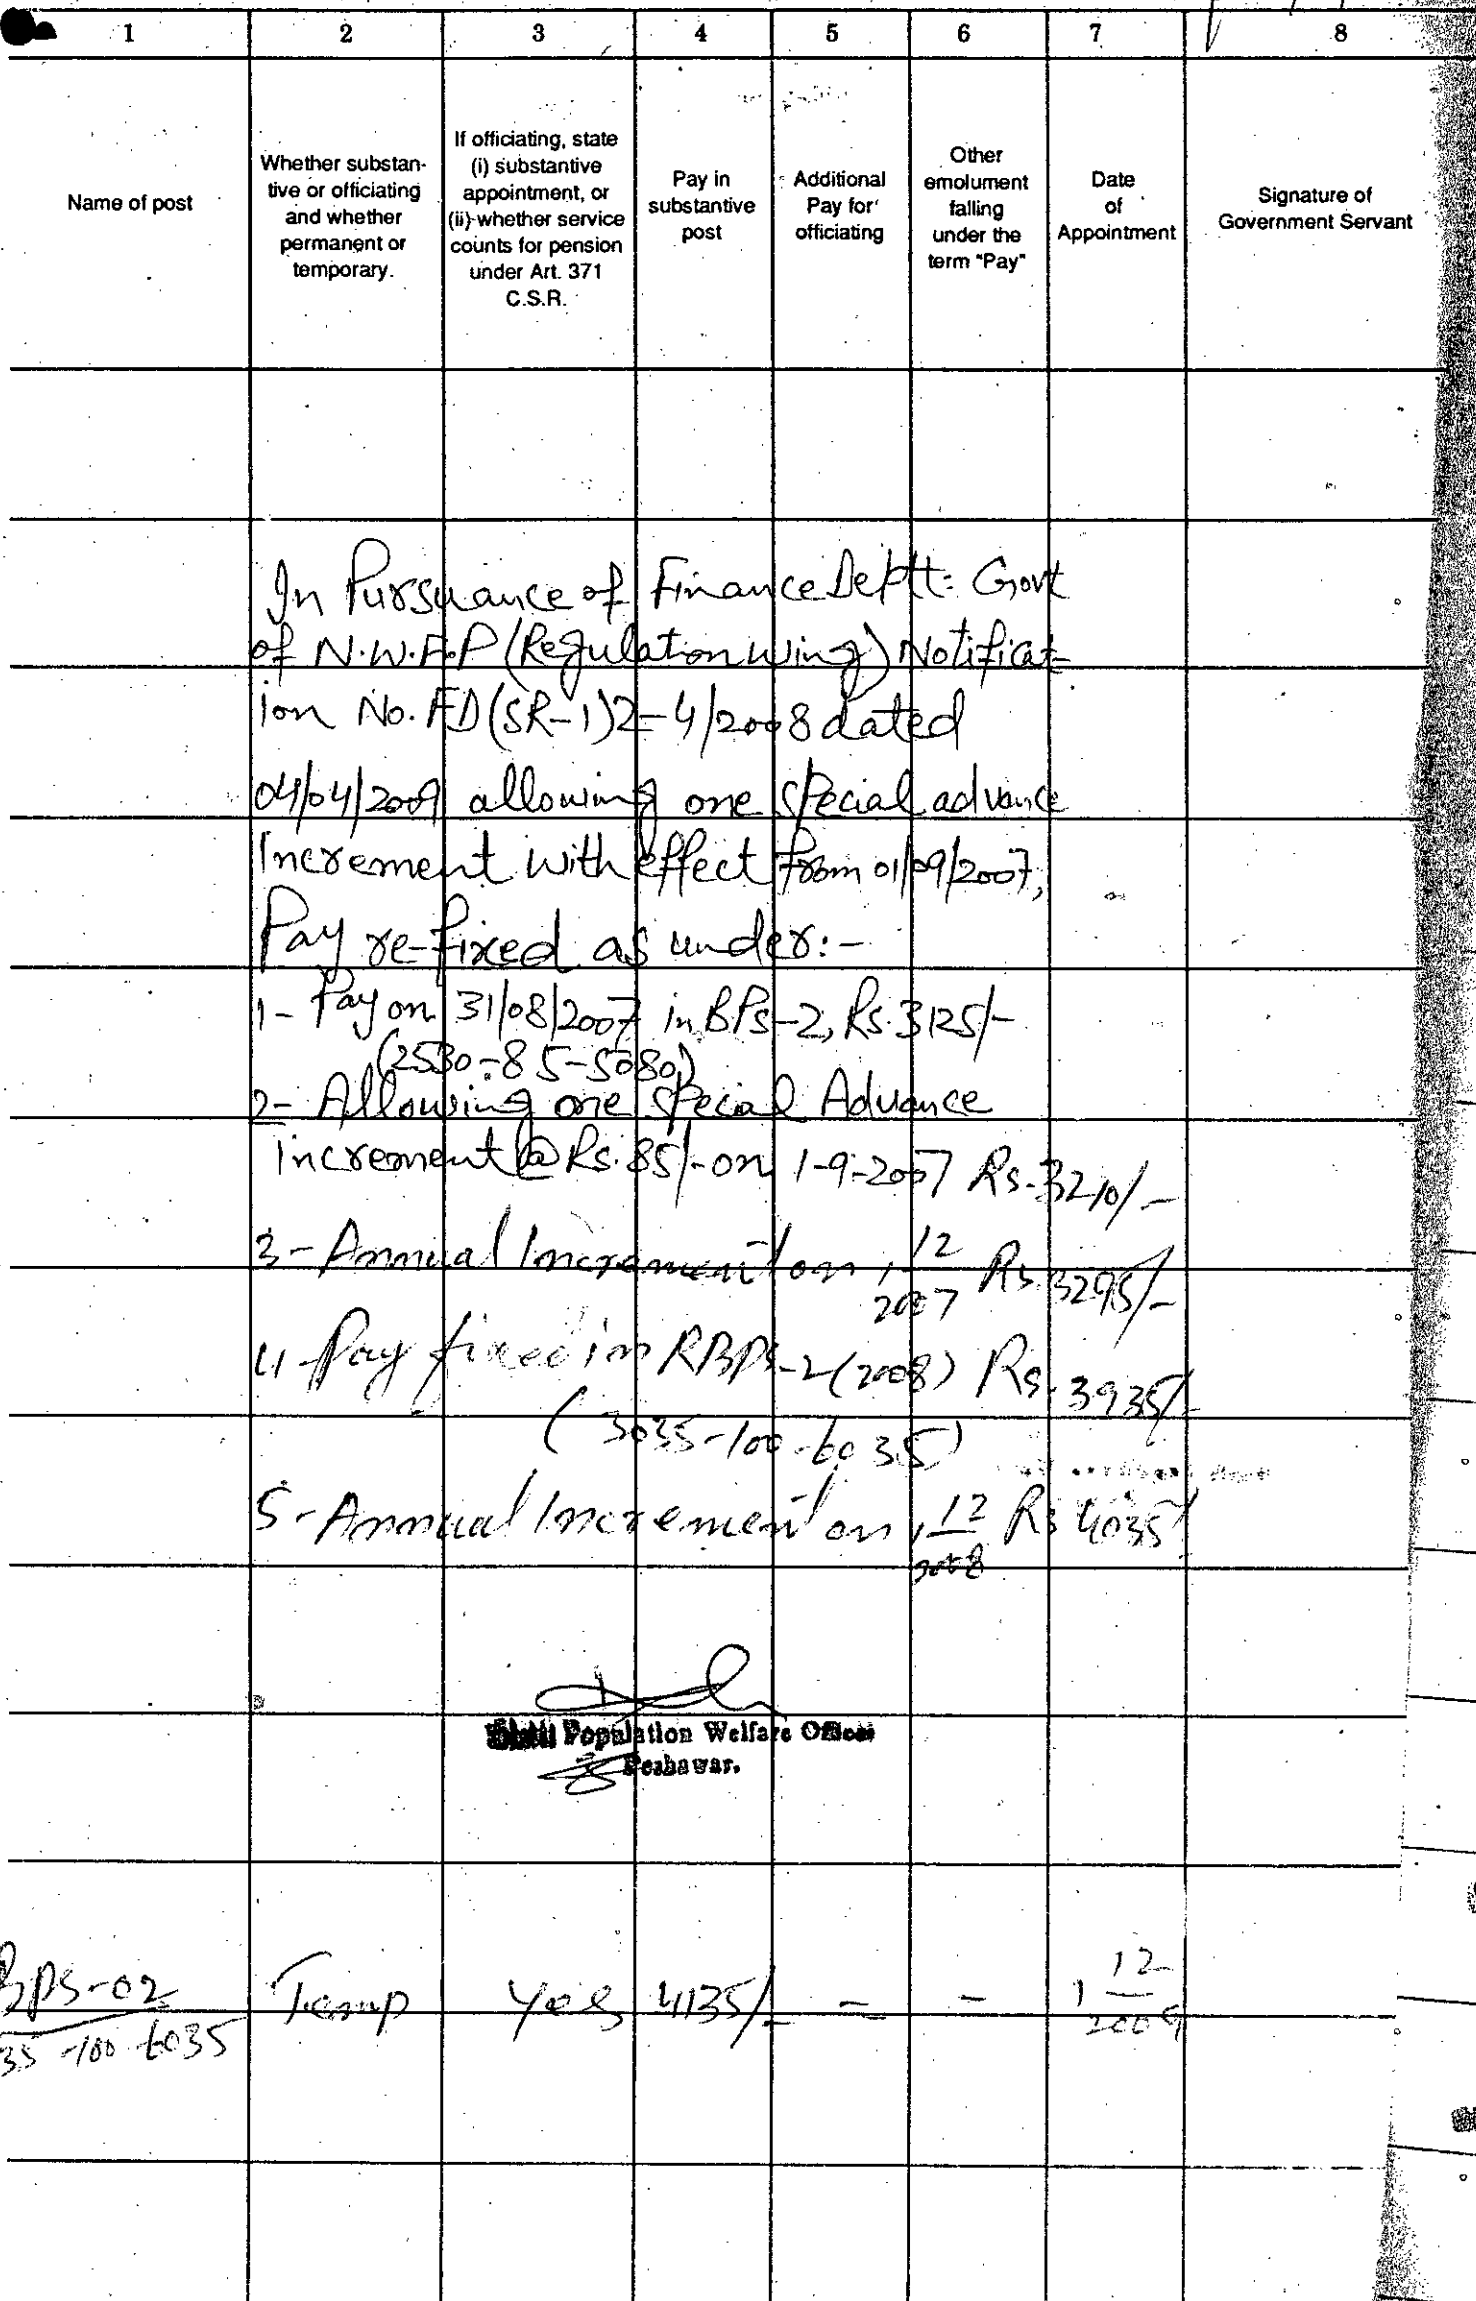 1 2 3 4 5 6 7 8
Name of post
Whether substan-
tive or officiating
and whether
permanent or
temporary.
If officiating, state
(i) substantive
appointment, or
(ii) whether service
counts for pension
under Art. 371
C.S.R.
Pay in
substantive
post
Additional
Pay for
officiating
Other
emolument
falling
under the
term "Pay"
Date
of
Appointment
Signature of
Government Servant
In Pursuance of Finance Deptt: Govt
of N.W.F.P (Regulation wing) Notificat-
ion No. FD(SR-1)2-4/2008 dated
04/04/2009 allowing one special advance
Increment with effect from 01/09/2007,
Pay re-fixed as under:-
1- Pay on 31/08/2007 in BPS-2, Rs. 3125/-
(2530-85-5080)
2- Allowing one special Advance
increment @ Rs. 85/- on 1-9-2007 Rs. 3210/-
3- Annual Increment on 1 12/2007 Rs. 3295/-
4- Pay fixed in RBPS-2 (2008) Rs. 3935/-
(3035-100-6035)
5- Annual Increment on 1 12/2008 Rs 4035/
Population Welfare Officer
Peshawar.
BPS-02 Temp Yes 4135/- - - 1 12/2009
35-100-6035